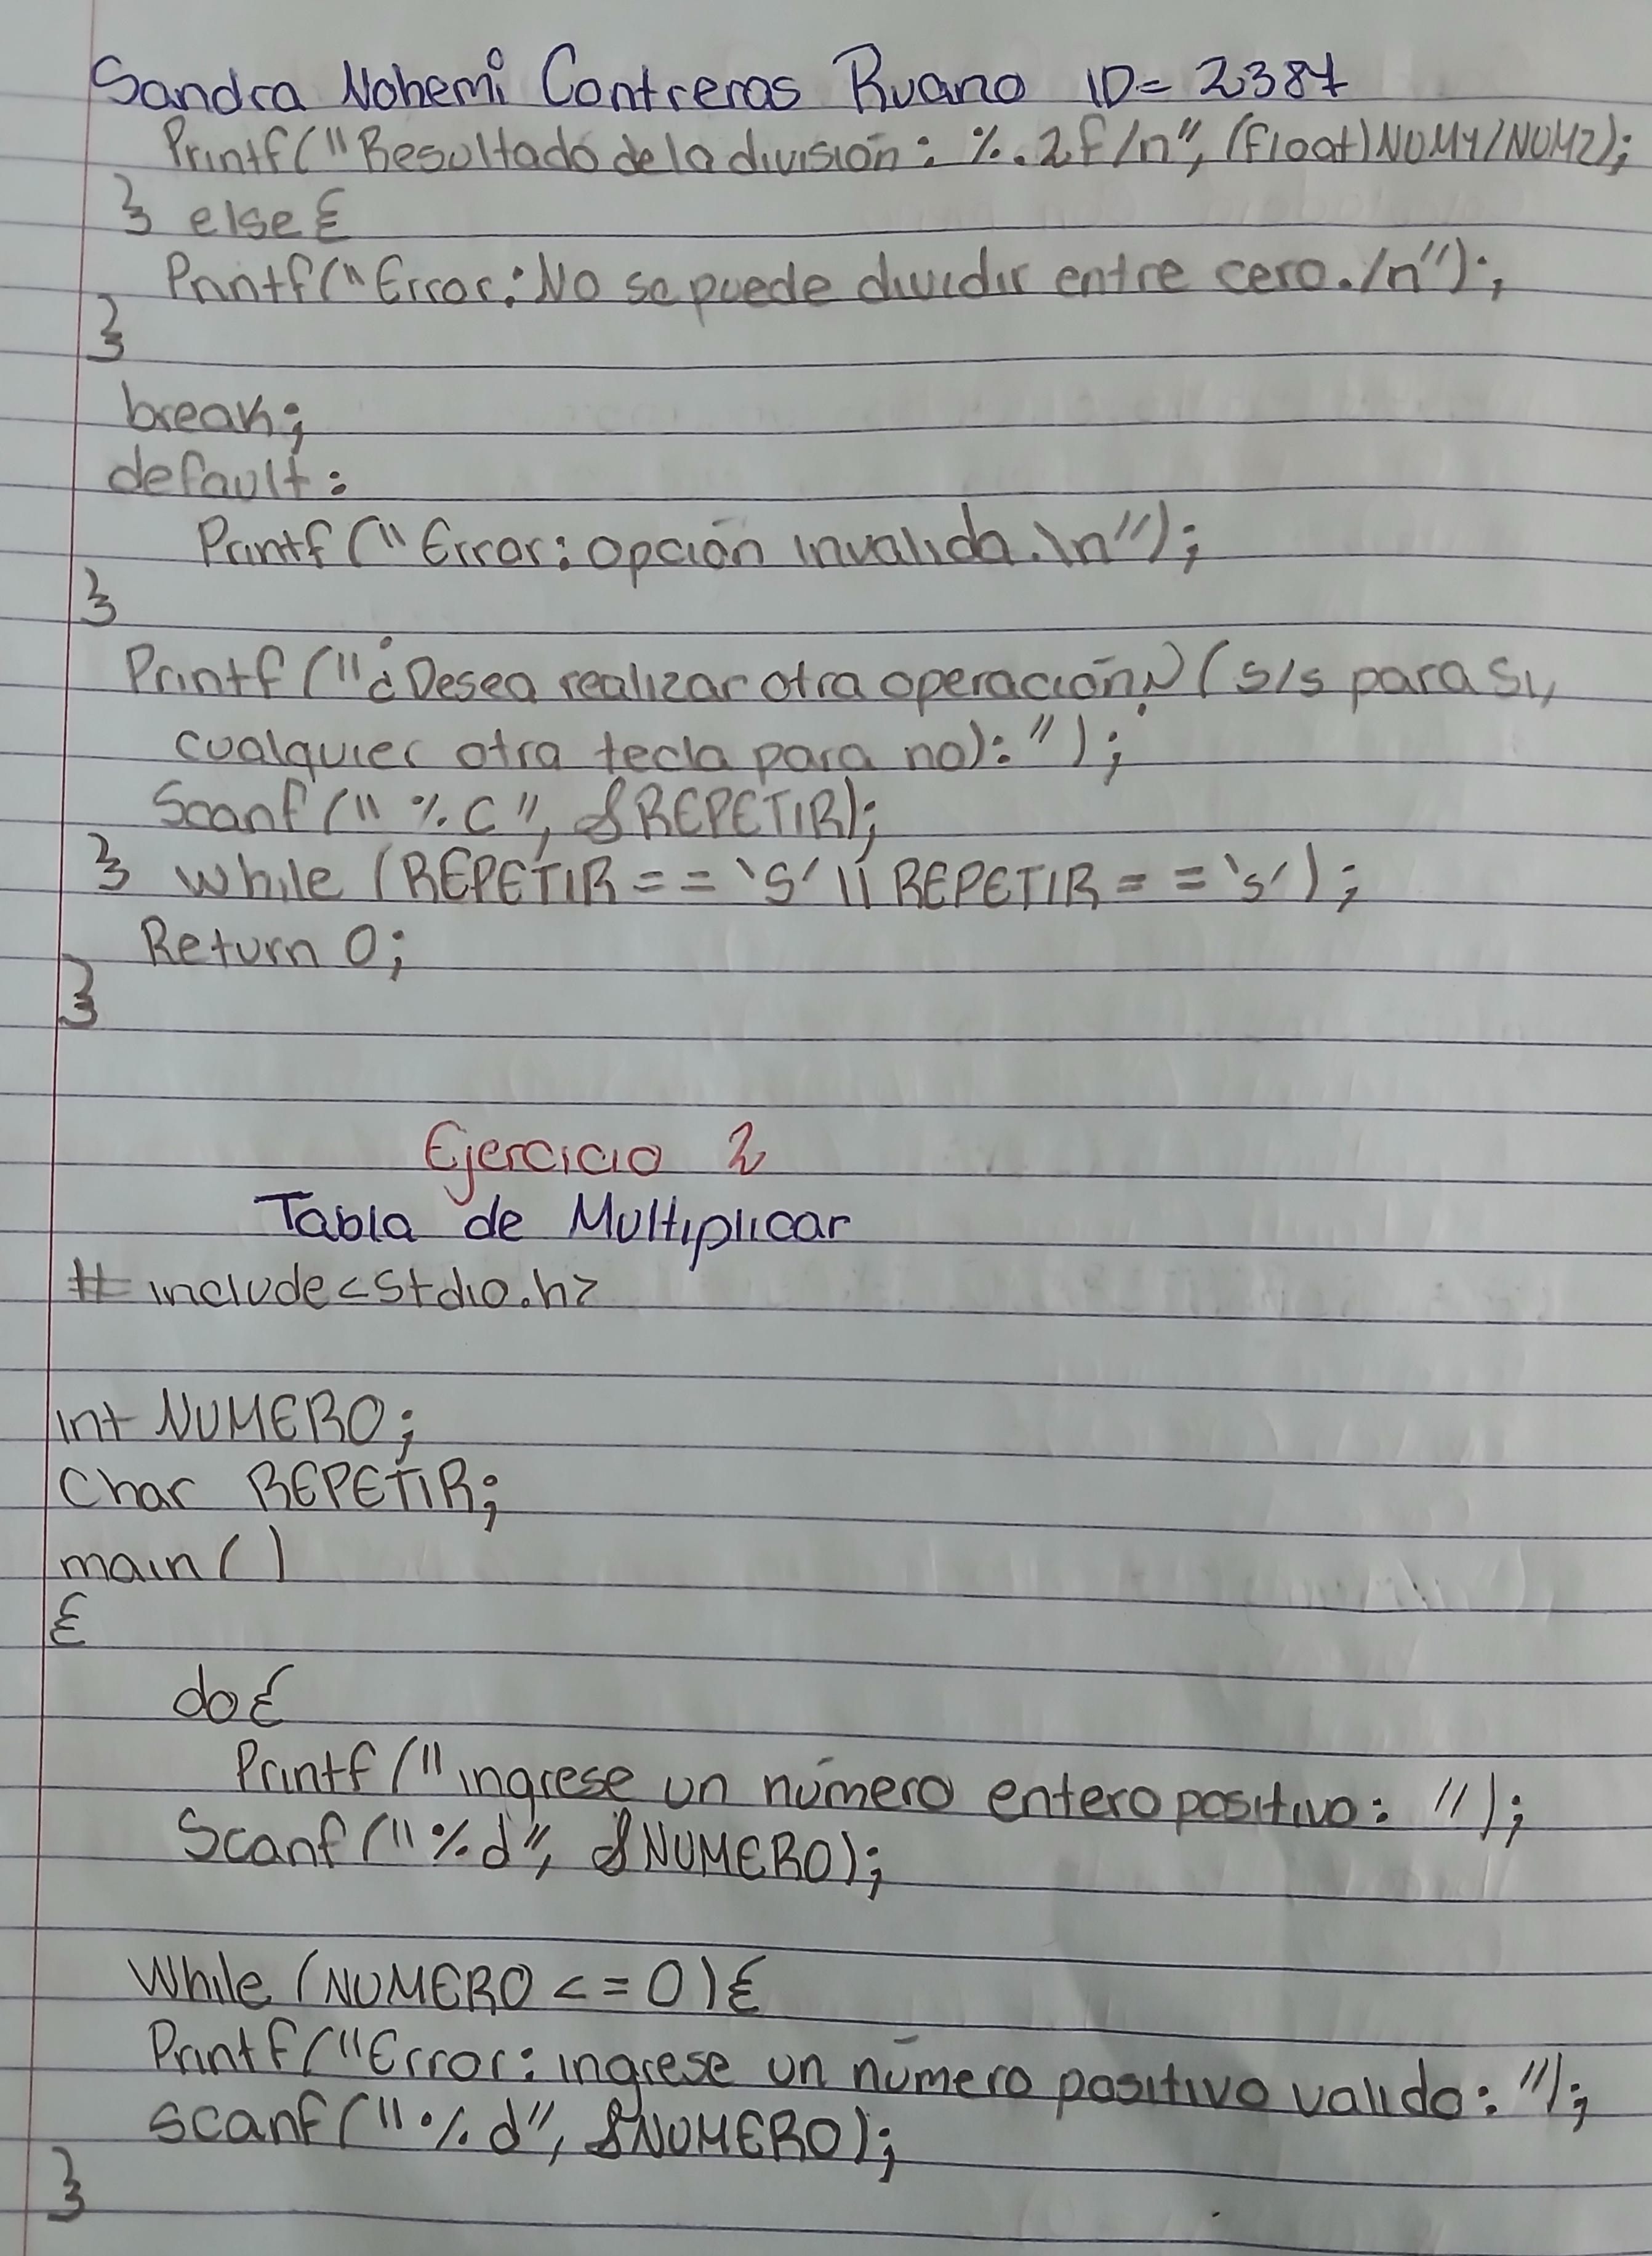 Sandra Nohemi Contreras Ruano ID= 2387
Printf("Resultado de la división: %.2f/n", (float)NUM1/NUM2);
} else{
Printf("Error: No se puede dividir entre cero./n");
}
break;
default:
Printf("Error: opción invalida.\n");
}
Printf("¿Desea realizar otra operación? (s/s para si,
cualquier otra tecla para no): ");
Scanf(" %c", &REPETIR);
} while (REPETIR == 'S' || REPETIR == 's');
Return 0;
}
Ejercicio 2
Tabla de Multiplicar
# include<stdio.h>
int NUMERO;
Char REPETIR;
main()
{
do{
Printf("ingrese un número entero positivo: ");
Scanf("%d", &NUMERO);
While (NUMERO <= 0){
Printf("Error: ingrese un número positivo valido: ");
scanf("%d", &NUMERO);
}